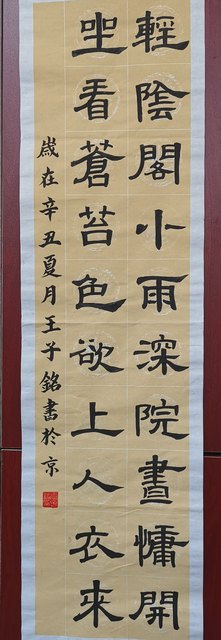 輕陰閣小雨深院晝慵開
坐看蒼苔色欲上人衣來
歲在辛丑夏月王子銘書於京